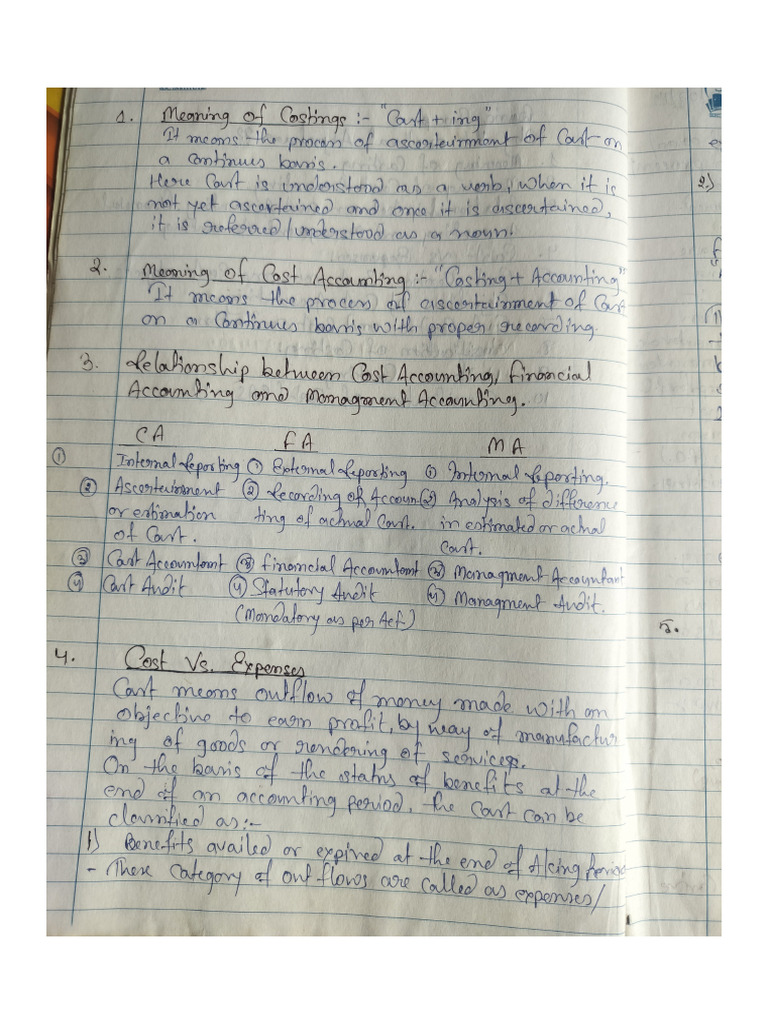 1. Meaning of Costings :- "Cost + ing"
It means the process of ascertainment of Cost on
a Continues basis.
Here Cost is understood as a verb, when it is
not yet ascertained and once it is ascertained,
it is referred/understood as a noun.
2. Meaning of Cost Accounting :- "Costing + Accounting"
It means the process of ascertainment of Cost
on a Continues basis with proper recording.
3. Relationship between Cost Accounting, Financial
Accounting and Managment Accounting.
CA FA MA
① Internal Reporting ① External Reporting ① Internal Reporting.
② Ascertainment ② Recording of Accoun ② Analysis of difference
or estimation ting of actual Cost. in estimated or actual
of Cost. Cost.
③ Cost Accountant ③ Financial Accountant ③ Managment Accountant
④ Cost Audit ④ Statutory Audit ④ Managment Audit.
(Mandatory as per Act)
4. Cost Vs. Expenses
Cost means outflow of money made with an
objective to earn profit, by way of manufactur
ing of goods or rendering of services.
On the basis of the status of benefits at the
end of an accounting period, the cost can be
classified as:-
1) Benefits availed or expired at the end of A/cing Period
- These Category of out flows are called as expenses/
2.)
5.